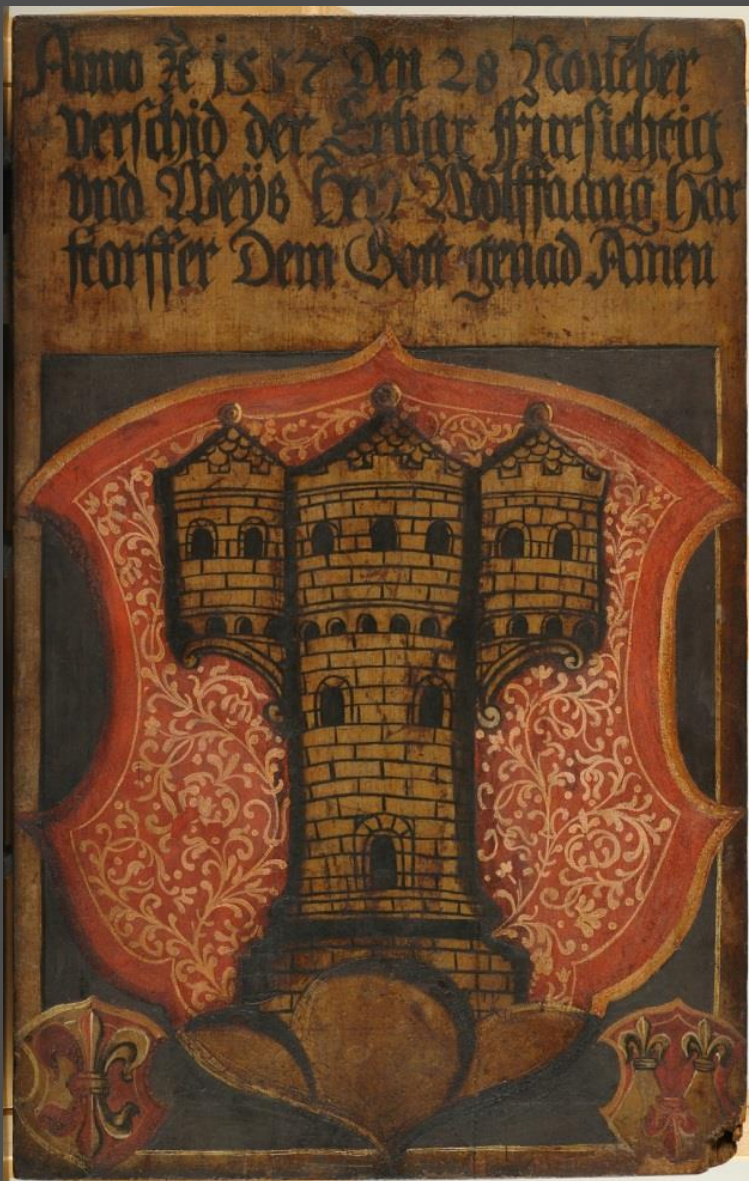 Anno ⁊c 1557 Den 28 Nouēber
verschid der Erbar ffursichtig
vnd Weÿß Herr Wolffgang Har
storffer Dem Gott genad Amen